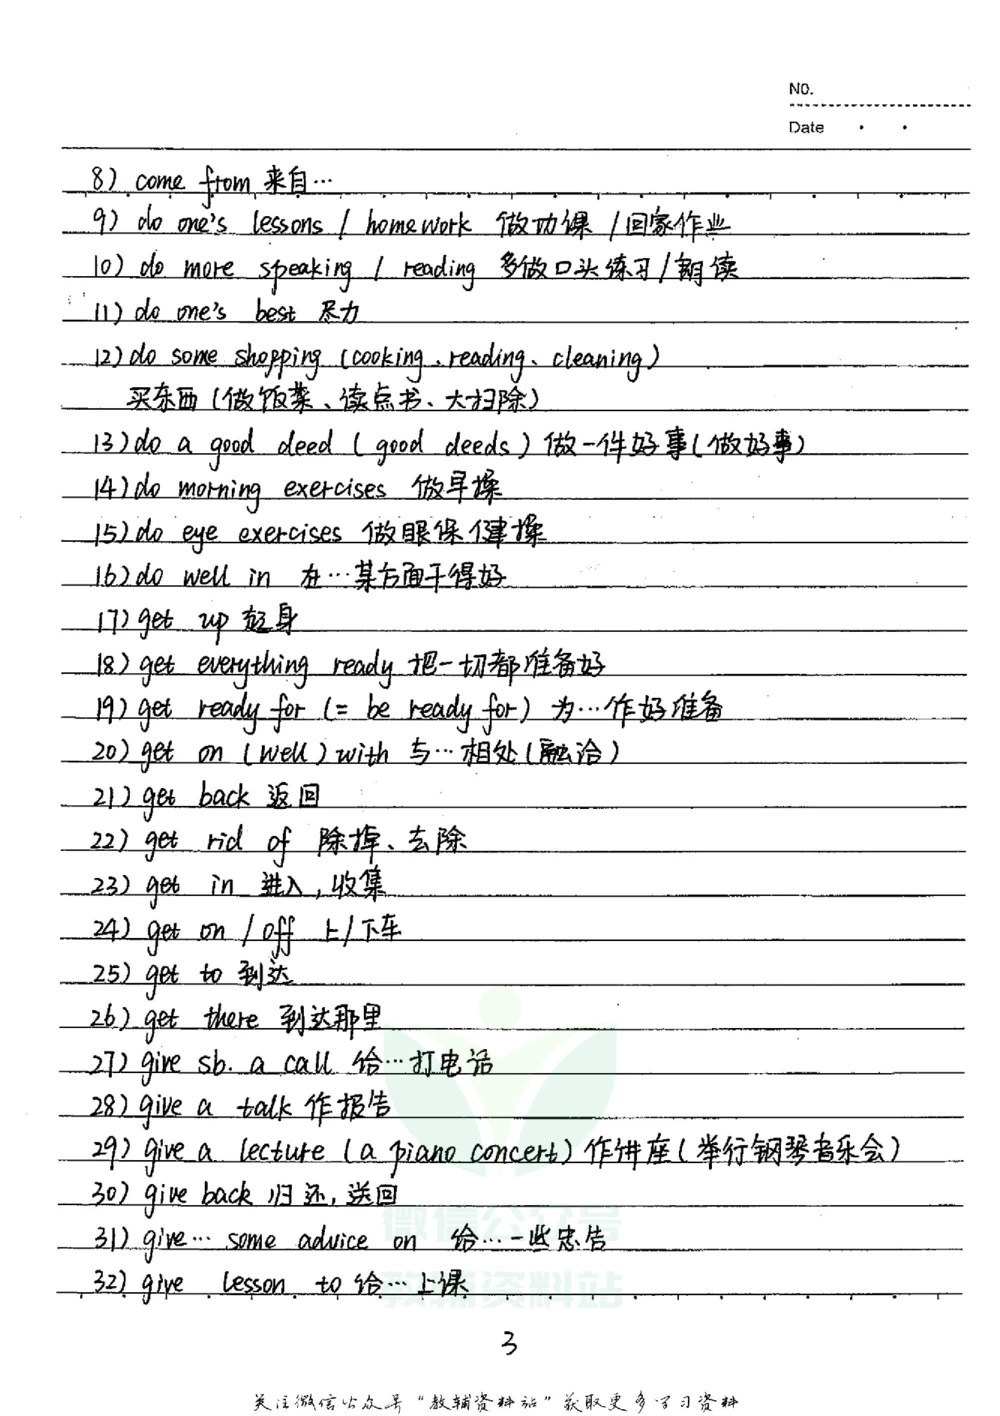 NO.
Date
8) come from 来自…
9) do one's lessons / homework 做功课 / 回家作业
10) do more speaking / reading 多做口头练习/朗读
11) do one's best 尽力
12) do some shopping (cooking、reading、cleaning)
买东西 (做饭菜、读点书、大扫除)
13) do a good deed (good deeds) 做一件好事(做好事)
14) do morning exercises 做早操
15) do eye exercises 做眼保健操
16) do well in 在…某方面干得好
17) get up 起身
18) get everything ready 把一切都准备好
19) get ready for (= be ready for) 为…作好准备
20) get on (well) with 与…相处(融洽)
21) get back 返回
22) get rid of 除掉、去除
23) get in 进入,收集
24) get on / off 上/下车
25) get to 到达
26) get there 到达那里
27) give sb. a call 给…打电话
28) give a talk 作报告
29) give a lecture (a piano concert) 作讲座(举行钢琴音乐会)
30) give back 归还,送回
31) give… some advice on 给…一些忠告
32) give lesson to 给…上课
微信公众号
教辅资料站
3
关注微信公众号“教辅资料站”获取更多学习资料